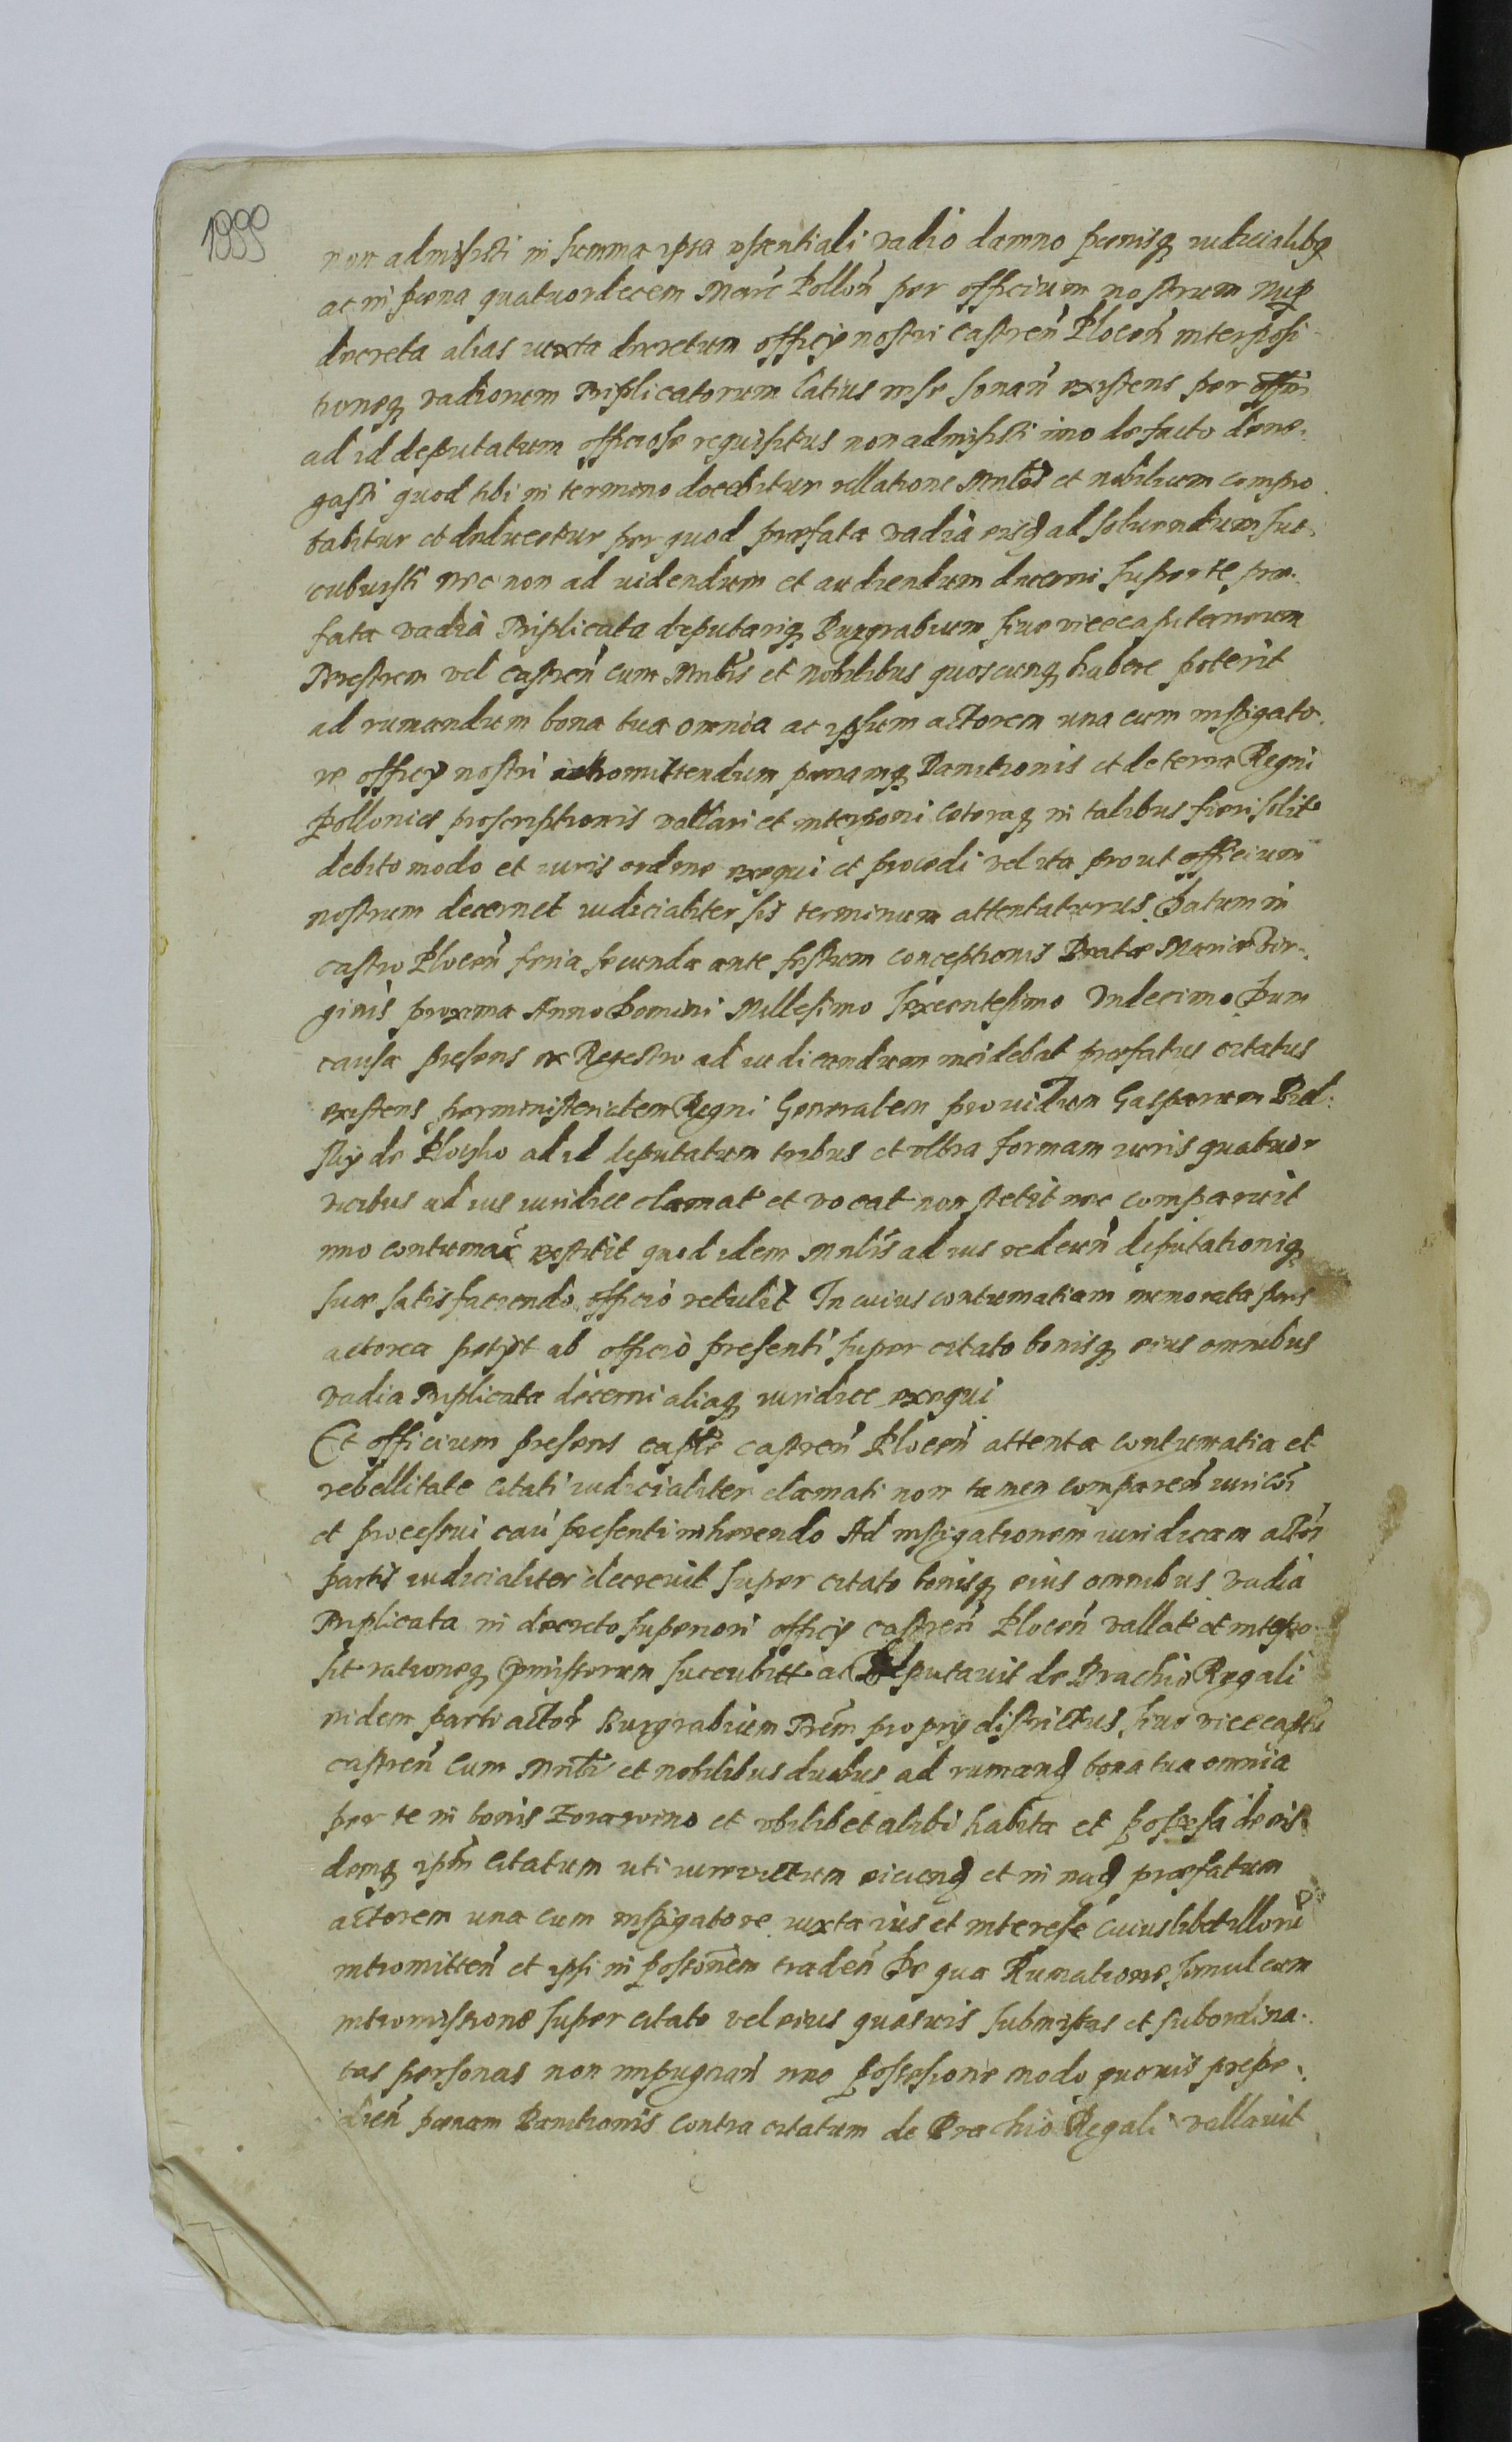 1999
non admisisti in summa ipsa essentiali vadio damno pænisq iudicialibq
ac in pæna quatuordecem Marc Pollon̄ per officium nostrum nup
decreta alias iuxta decretum officij nostri Castren̄ Plocen̄ interposi
tioneq vadiorum Triplicatorum latius in se sonan̄ existens per offm
ad id deputatum officiose requisitus non admisisti imo de facto dene.
gasti quod tibi in termino docebitur rellatione Mnlis et nobilium compro
babitur et deducetur per quod præfata vadia eisd ad solvendum suc.
cubuisti nec non ad uidendum et audiendum decerni super te præ.
fata vadia Triplicata deputariq Burgrabium siue vicecapitaneum
Terrestrem vel Castren̄ cum Mnlis et Nobilibus quoscunq habere poterit
ad rumandum bona tua omnia ac ipsum actorem una cum instigato.
re officij nostri intromittendum pænamq Bannitionis et de terra Regni
Pollonies proscriptionis vallari et interponi ceteraq in talibus fieri solit
debito modo et iuris ordine exequi et procedi vel ita prout officium
nostrum decernet iudicialiter sis terminum attentaturus. Datum in
castro Plocen̄ feria secunda ante festum Conceptionis Beatæ Mariæ Vir.
ginis proxima Anno Domini Millesimo Sexcentesimo Vndecimo Dum
causa presens ex Regestro ad iudicandum incidebat præfatus citatus
existens per ministerialem Regni Generalem prouidum Gasparum Bid.
sky de Plocsko ad id deputatum tribus et ultra formam iuris quatuor
vicibus ad ius iuridice clamat et vocat non stetit nec comparuit
imo contumax exstitit quod idem Mnlis ad ius redeun̄ deputationiq
suæ satisfaciendo officio retulit In cuius contumatiam memorata pars
actorea petijt ab officio presenti super citato bonisq eius omnibus
vadia Triplicata decerni aliaq iuridice exequi
Et officium presens caple castren̄ Plocen̄ attenta contumatia et
rebellitate citati iudicialiter clamati non tamen comparen̄ iuri coi
et processui caū presenti inherendo Ad instigationem iuridicam actor
partis iudicialiter decrevit super citato bonisq eius omnibus vadia
Triplicata in decreto superiori officij castren̄ Plocen̄ vallat et interpo
sit rationeq pmissorum succubitt ac Deputavit de Brachio Regali
eidem parti actor Burgrabium Trem proprij districtus siue vicecaptu
castren̄ cum Mnlb et nobilibus duobus ad rumand bona tua omnia
per te in bonis Zorawino et vbilibet alibi habita et possessa de eis
demq ipm Citatum uti iurevictum eiiciend et in ead præfatum
actorem una cum instigatore iuxta ius et interesse cuiuslibet illorū
intromitten̄ et ipsi in possōnem traden̄ De qua Rumatione simul cum
intromissione super citato vel eius quasvis submissas et subordina.
tas personas non impugnan̄ nec possessione modo quovis prepe.
dien̄ pænam Bannitionis contra citatum de Brachio Regali vallavit